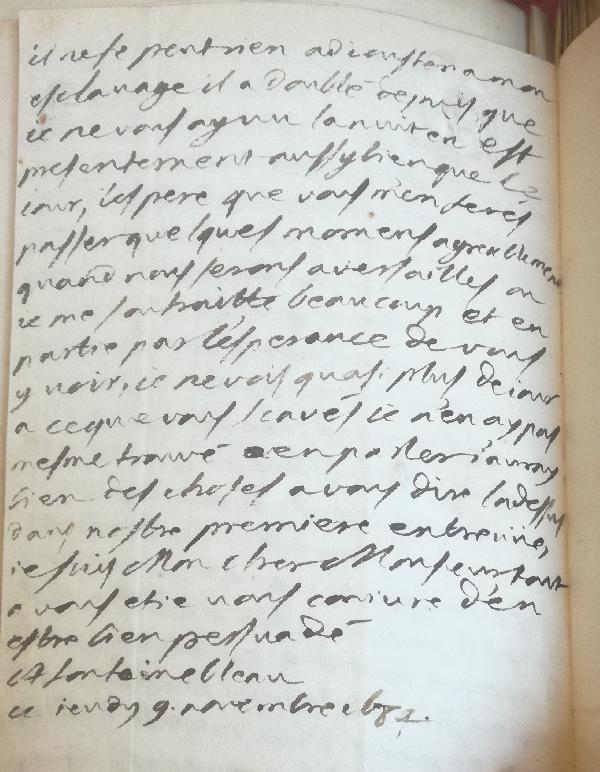 il ne se peut rien adiouster a mon
esclavage il a doublé depuis que
ie ne vous ay vu la nuit en est
presentement aussy bien que le
iour, i'espere que vous m'en feres
passer quelques momens agreablement
quand nous serons a versailles ou
ie me souhaitte beaucoup et en
partie par l'esperance de vous
y voir, ie ne vois quasi plus de iour
a ceque vous scavés ie n'en ay pas
mesme trouvé a en parler i'auray
bien des choses a vous dire la dessus
dans nostre premiere entreveue,
ie suis Mon cher Monsieur tout
a vous et ie vous coniure d'en
estre bien persuadé
A fontainebleau
ce ieudy 9. novembre